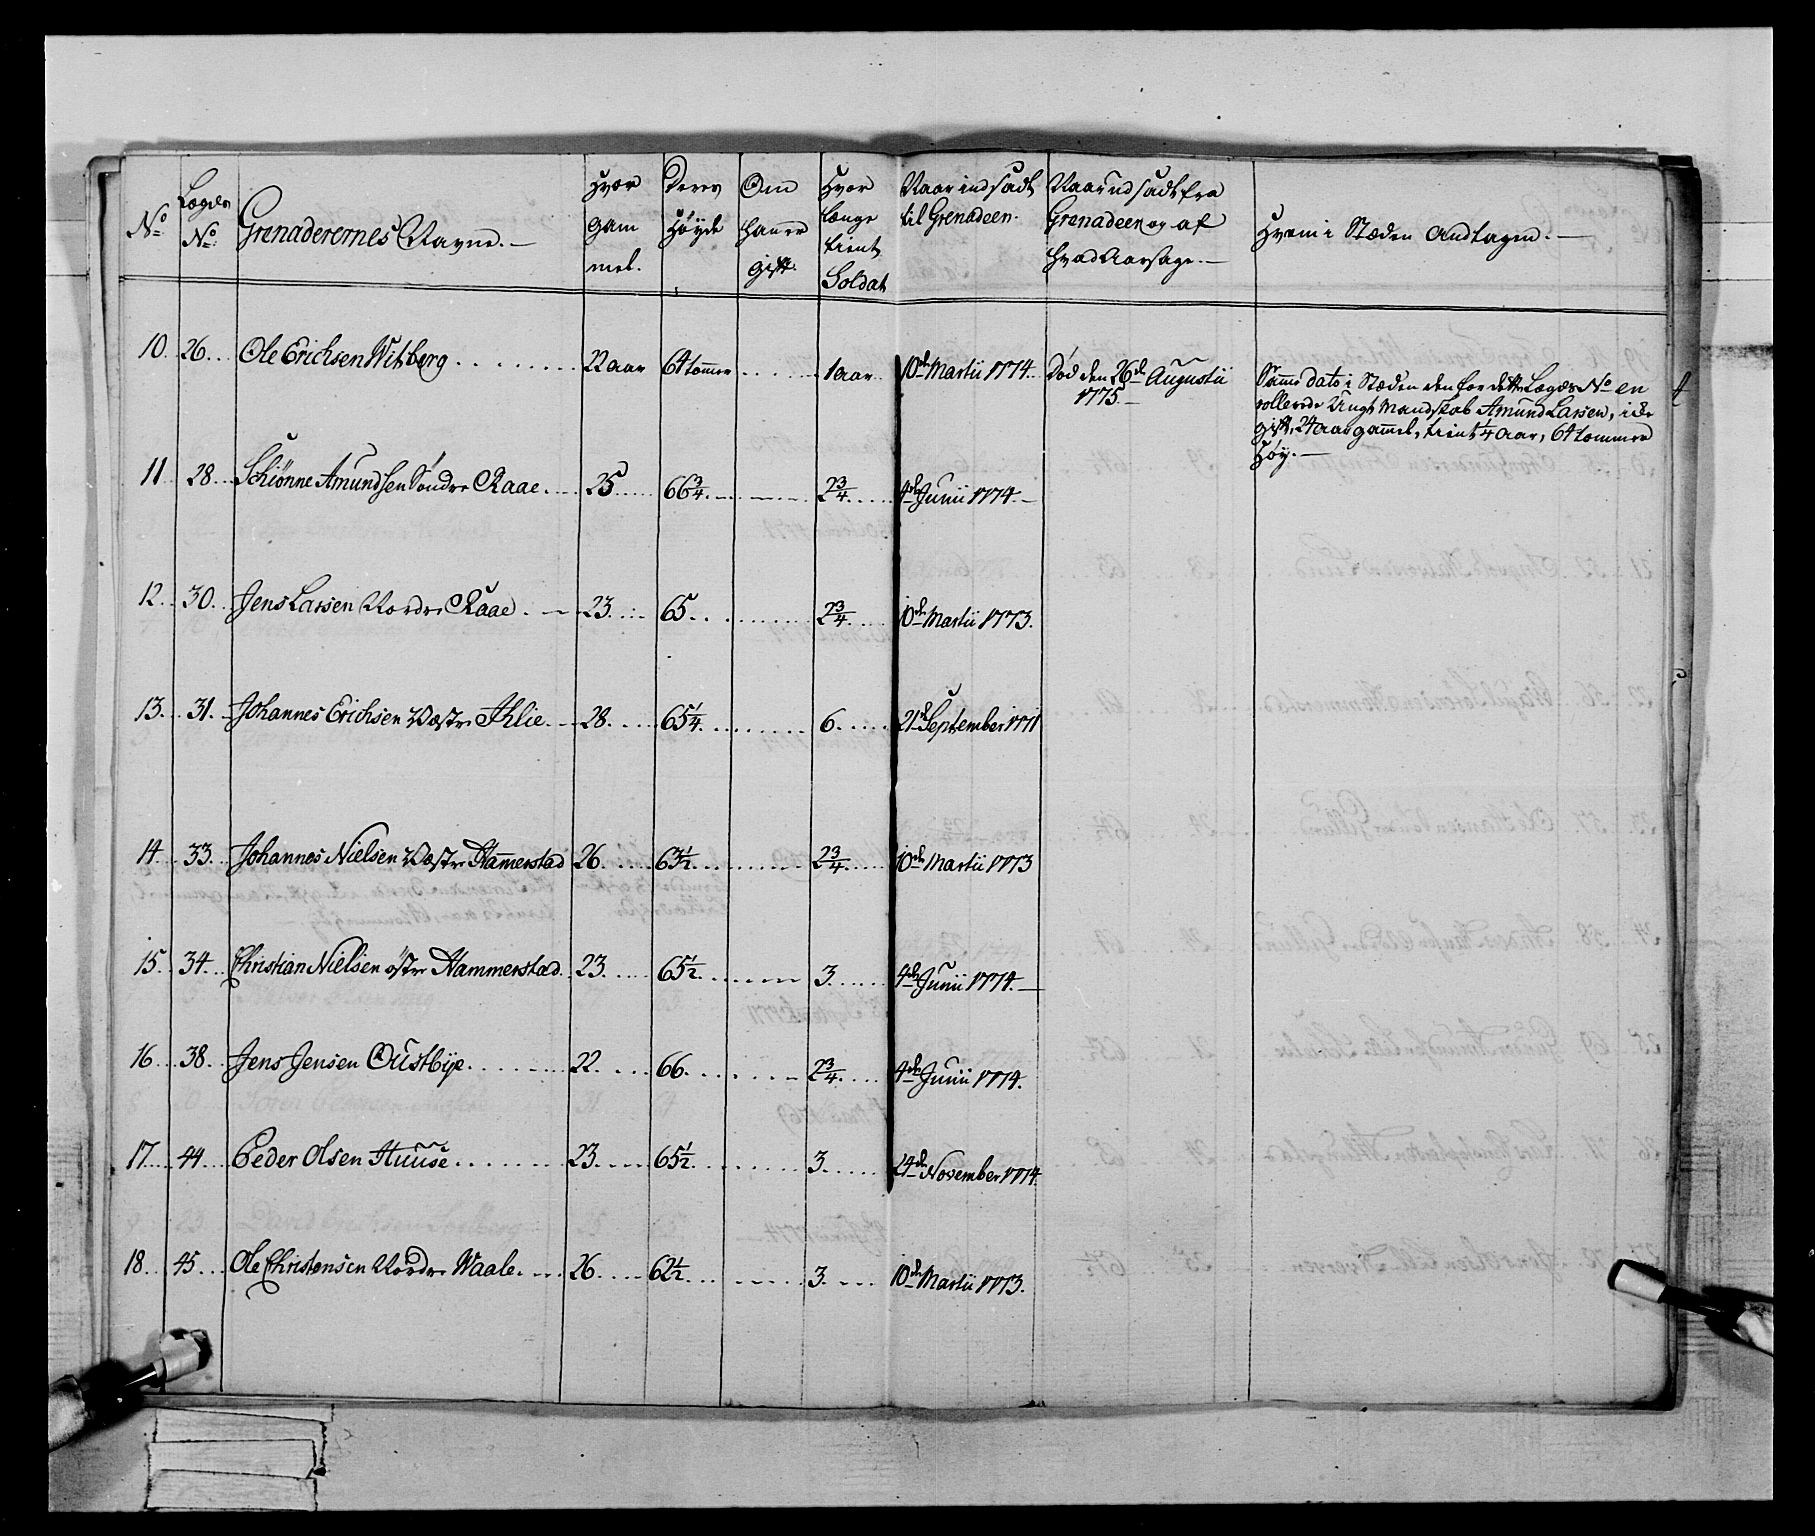 No Lægds No: Grenaderernes Navne.— Hvor gam mel. Deres Høyde Om han er gift. Hvor længe tient Soldat Naar indsadt til Grenadeer. Naar udsadt fra Grenadeer og af Hvad Aarsage.— Hvem i Stæden Andtagen.—
10. 26. Ole Erichsen Witberg 22 aar 64 tommer 1 aar 10de Martii 1774. Död den 26de Augustii 1775.—
Samme dato i Stæden den for dette Lægds No en
rollerede Ungt Mandskab Amund Larsen, icke
gift, 24 aar gammel, tient 1/4 aar, 64 tommer
Høy.—
11 28. Schiönne Amundsen Söndre Raae. 25 66 3/4. 2 3/4. 4de Junii 1774.—
12. 30. Jens Larsen Nordre Raae. 23. 65. 2 3/4. 10de Martii 1773.
13. 31. Johannes Erichsen Væstre Ihlie. 28. 65 1/4. 6. 21de September 1771
14. 33. Johannes Nielsen Væstre Hammerstad 26. 63 1/2. 2 3/4. 10de Martii 1773
15. 34. Christian Nielsen östre Hammerstad. 23. 65 1/2. 3. 4de Junii 1774.—
16 38. Jens Jensen Oustbÿe. 22. 66. 2 3/4. 4de Junii 1774.
17. 44. Peder Olsen Huuse. 23. 65 1/2. 3. 24de November 1774.
18. 45. Ole Christensen Nordre Waale. 26. 62 1/2. 3. 10de Martii 1773.